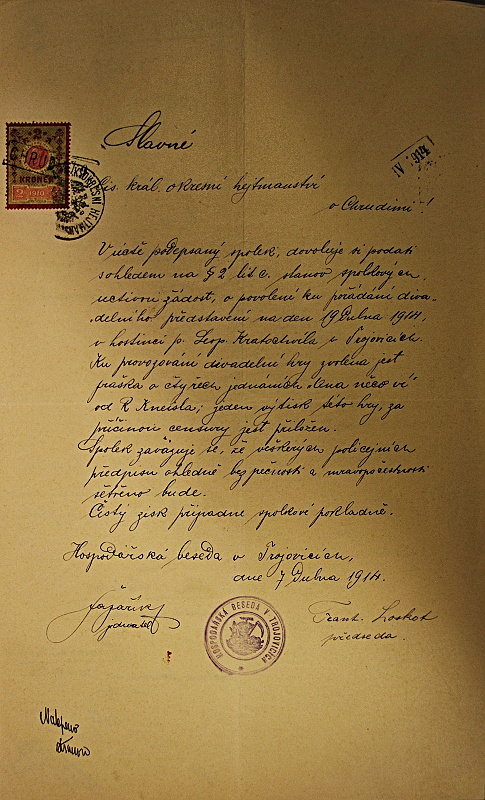 Slavné
2
KRONEN
1910
IV 1914
cís. král. okresní hejtmanství
v Chrudimi!
V úctě podepsaný spolek, dovoluje si podati
s ohledem na § 2 lit c. stanov spolkových
uctivou žádost, o povolení ku pořádání diva-
delního představení na den 19 Dubna 1914,
v hostinci p. Leop. Kratochvíla v Trojovicích.
Ku provozování divadelní hry zvolena jest
fraška o čtyřech jednáních „Lena něco ví"
od R. Kneisla; jeden výtisk této hry, za
příčinou censury jest přiložen.
Spolek zavazuje se, že veškerých policejních
předpisů ohledně bezpečnosti a mravopočestnosti
šetřeno bude.
Čistý zisk připadne spolkové pokladně.
Hospodářská beseda v Trojovicích,
dne 7 Dubna 1914.
jednatel
HOSPODÁŘSKÁ BESEDA V TROJOVICÍCH
Frant. Loskot
předseda.